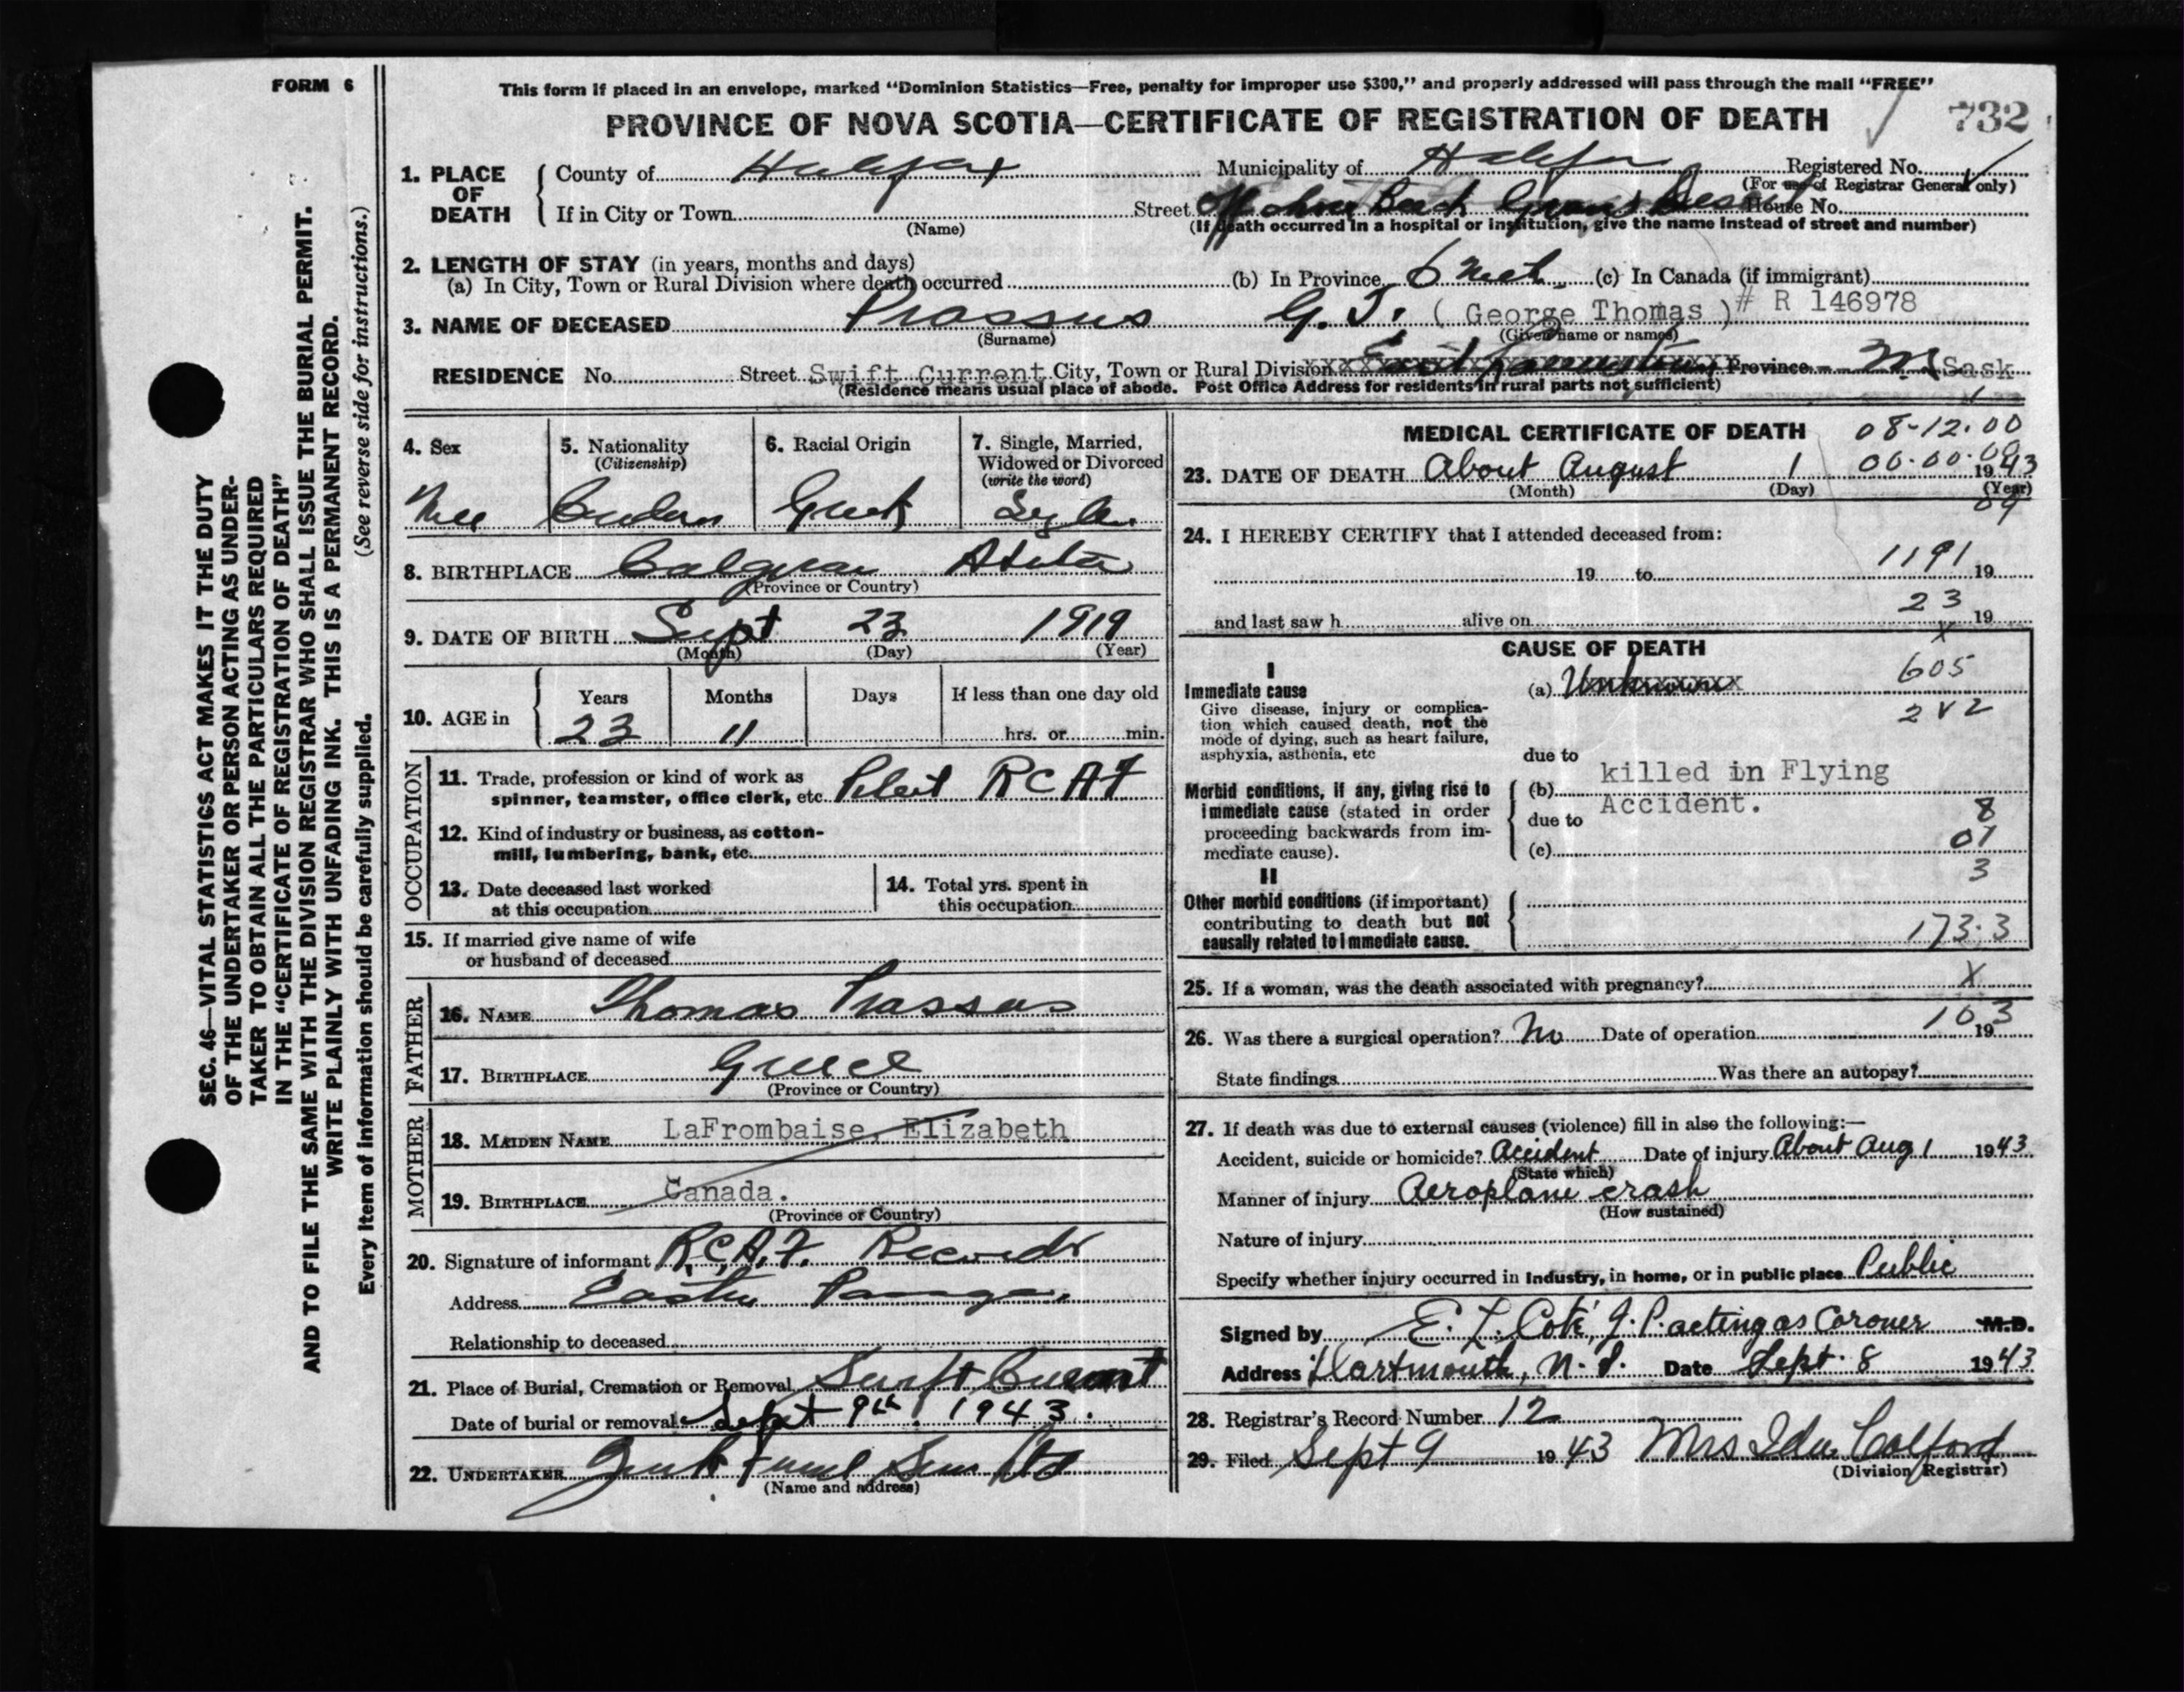 FORM 6
This form if placed in an envelope, marked "Dominion Statistics—Free, penalty for improper use $300," and properly addressed will pass through the mail "FREE"
PROVINCE OF NOVA SCOTIA—CERTIFICATE OF REGISTRATION OF DEATH
732
1. PLACE OF DEATH
County of Halifax Municipality of Halifax Registered No.
(For use of Registrar General only)
If in City or Town Street House No.
(Name) (If death occurred in a hospital or institution, give the name instead of street and number)
2. LENGTH OF STAY (in years, months and days)
(a) In City, Town or Rural Division where death occurred (b) In Province 6 (c) In Canada (if immigrant)
3. NAME OF DECEASED Prassus G. T. (George Thomas) # R 146978
(Surname) (Given name or names)
RESIDENCE No. Street Swift Current City, Town or Rural Division Province Sask
(Residence means usual place of abode. Post Office Address for residents in rural parts not sufficient)
4. Sex 5. Nationality 6. Racial Origin 7. Single, Married,
(Citizenship) Widowed or Divorced
(write the word)
Greek
8. BIRTHPLACE Calgary
(Province or Country)
9. DATE OF BIRTH Sept 23 1919
(Month) (Day) (Year)
10. AGE in Years Months Days If less than one day old
23 11 hrs. or min.
OCCUPATION
11. Trade, profession or kind of work as
spinner, teamster, office clerk, etc. Pilot RCAF
12. Kind of industry or business, as cotton-
mill, lumbering, bank, etc.
13. Date deceased last worked
at this occupation
14. Total yrs. spent in
this occupation
15. If married give name of wife
or husband of deceased
FATHER
16. NAME Thomas Prassus
17. BIRTHPLACE Greece
(Province or Country)
MOTHER
18. MAIDEN NAME LaFrombaise, Elizabeth
19. BIRTHPLACE Canada.
(Province or Country)
20. Signature of informant R.C.A.F. Records
Address Eastern Passage
Relationship to deceased
21. Place of Burial, Cremation or Removal Swift Current
Date of burial or removal Sept 9th, 1943.
22. UNDERTAKER
(Name and address)
MEDICAL CERTIFICATE OF DEATH
08-12.00
23. DATE OF DEATH About August 1 1943
(Month) (Day) (Year)
09
24. I HEREBY CERTIFY that I attended deceased from:
1191
19 to 19
23
and last saw h alive on 19
CAUSE OF DEATH
X
I
Immediate cause
Give disease, injury or complica-
tion which caused death, not the
mode of dying, such as heart failure,
asphyxia, asthenia, etc
(a) Unknown 605
due to
Morbid conditions, if any, giving rise to
immediate cause (stated in order
proceeding backwards from im-
mediate cause).
(b) killed in Flying
due to Accident. 8
(c) 01
3
II
Other morbid conditions (if important)
contributing to death but not
causally related to immediate cause.
173.3
25. If a woman, was the death associated with pregnancy? X
103
26. Was there a surgical operation? No Date of operation 19
State findings Was there an autopsy?
27. If death was due to external causes (violence) fill in also the following:—
Accident, suicide or homicide? Accident Date of injury About Aug 1 1943
(State which)
Manner of injury Aeroplane crash
(How sustained)
Nature of injury
Specify whether injury occurred in industry, in home, or in public place Public
Signed by E. L. Coté, J.P. acting as Coroner M.D.
Address Dartmouth, N.S. Date Sept. 8 1943
28. Registrar's Record Number 12
29. Filed Sept 9 1943 Mrs Ida Colford
(Division Registrar)
SEC. 46—VITAL STATISTICS ACT MAKES IT THE DUTY
OF THE UNDERTAKER OR PERSON ACTING AS UNDER-
TAKER TO OBTAIN ALL THE PARTICULARS REQUIRED
IN THE "CERTIFICATE OF REGISTRATION OF DEATH"
AND TO FILE THE SAME WITH THE DIVISION REGISTRAR WHO SHALL ISSUE THE BURIAL PERMIT.
WRITE PLAINLY WITH UNFADING INK. THIS IS A PERMANENT RECORD.
Every item of information should be carefully supplied. (See reverse side for instructions.)